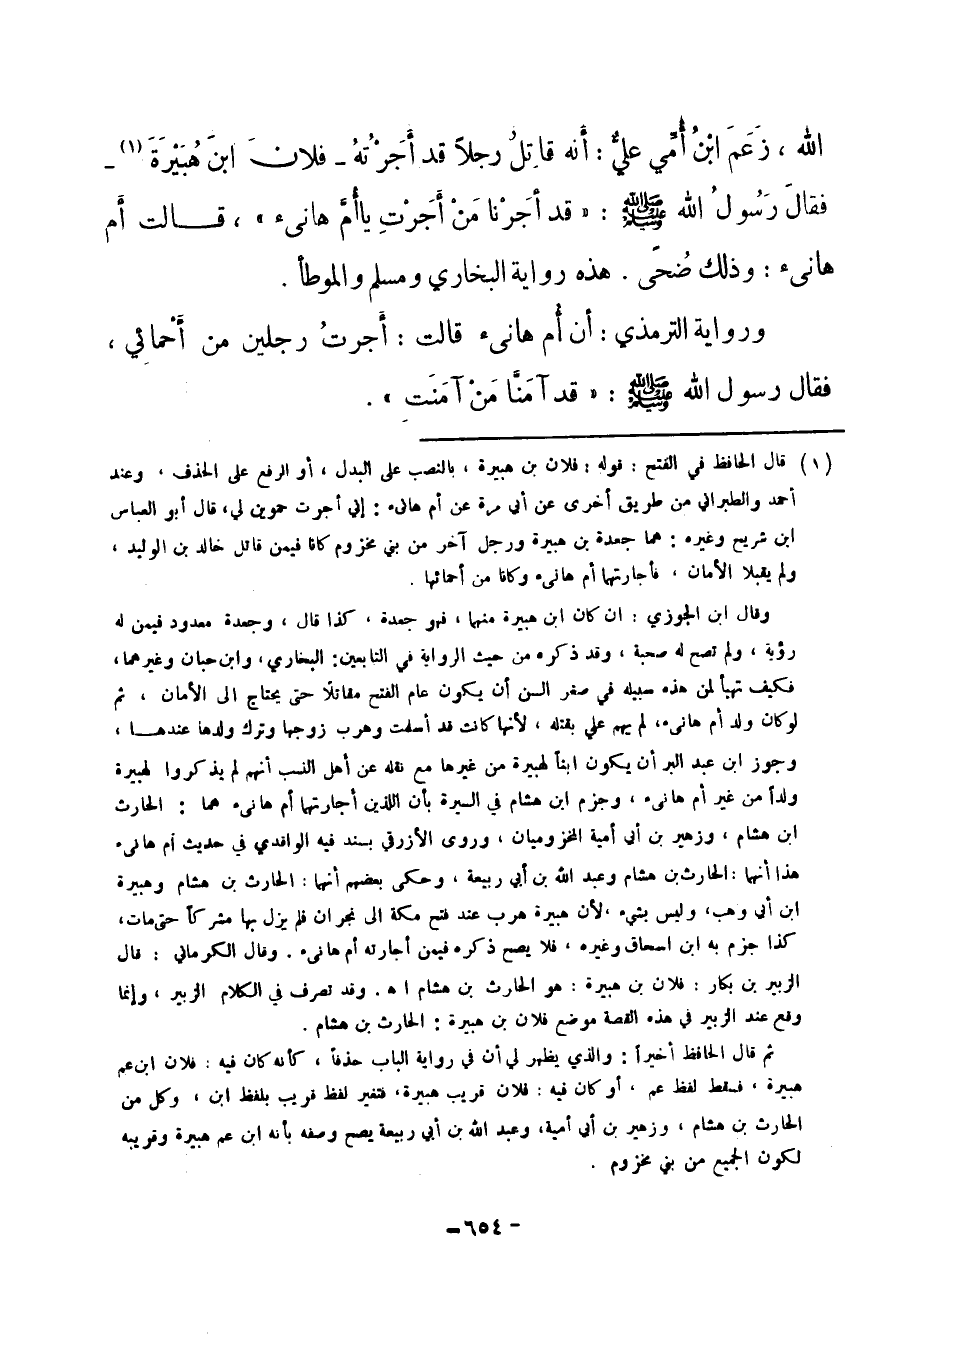 الله ، زَعَمَ ابْنُ أُمِّي عليٌّ : أنه قاتِلُ رجلاً قد أَجَرْتُهُ ـ فلانَ ابنَ هُبَيْرَةَ (١) ـ
فقالَ رَسُولُ الله ﷺ : « قد أجَرْنا مَنْ أَجَرْتِ ياأُمَّ هانىء » ، قـــالت أم
هانىء : وذلك ضُحًى . هذه رواية البخاري ومسلم والموطأ .
ورواية الترمذي : أن أُم هانىء قالت : أَجرتُ رجلين من أَحْمائِي ،
فقال رسول الله ﷺ : « قد آمَنَّا مَنْ آمَنَتِ » .
(١) قال الحافظ في الفتح : قوله : فلان بن هبيرة ، بالنصب على البدل ، أو الرفع على الحذف ، وعند
أحمد والطبراني من طريق أخرى عن أبي مرة عن أم هانىء : إني أجرت حموين لي، قال أبو العباس
ابن شريح وغيره : هما جعدة بن هبيرة ورجل آخر من بني مخزوم كانا فيمن قاتل خالد بن الوليد ،
ولم يقبلا الأمان ، فأجارتها أم هانىء وكانا من أحمائها .
وقال ابن الجوزي : ان كان ابن هبيرة منها ، فهو جعدة ، كذا قال ، وجعدة معدود فيمن له
رؤية ، ولم تصح له صحبة ، وقد ذكره من حيث الرواية في التابعين: البخاري، وابن حبان وغيرهما،
فكيف تهيأ لمن هذه سبيله في صغر السن أن يكون عام الفتح مقاتلًا حتى يحتاج الى الأمان ، ثم
لو كان ولد أم هانىء، لم يهم علي بقتله ، لأنها كانت قد أسلمت وهرب زوجها وترك ولدها عندهــا ،
وجوز ابن عبد البر أن يكون ابناً لهبيرة من غيرها مع نقله عن أهل النسب أنهم لم يذكروا لهبيرة
ولداً من غير أم هانىء ، وجزم ابن هشام في السيرة بأن اللذين أجارتها أم هانىء هما : الحارث
ابن هشام ، وزهير بن أبي أمية المخزوميان ، وروى الأزرقي بسند فيه الواقدي في حديث أم هانىء
هذا أنها : الحارث بن هشام وعبد الله بن أبي ربيعة ، وحكى بعضهم أنها : الحارث بن هشام وهبيرة
ابن أبي وهب، وليس بشيء ،لأن هبيرة هرب عند فتح مكة الى نجران فلم يزل بها مشركاً حتى مات،
كذا جزم به ابن اسحاق وغيره ، فلا يصح ذكره فيمن أجارته أم هانىء . وقال الكرماني : قال
الزبير بن بكار : فلان بن هبيرة : هو الحارث بن هشام ا ه . وقد تصرف في الكلام الزبير ، وإنما
وقع عند الزبير في هذه القصة موضع فلان بن هبيرة : الحارث بن هشام .
ثم قال الحافظ أخيراً : والذي يظهر لي أن في رواية الباب حذفاً ، كأنه كان فيه : فلان ابن عم
هبيرة ، فسقط لفظ عم ، أو كان فيه : فلان قريب هبيرة، فتغير لفظ قريب بلفظ ابن ، وكل من
الحارث بن هشام ، وزهير بن أبي أمية، وعبد الله بن أبي ربيعة يصح وصفه بأنه ابن عم هبيرة وقريبه
لكون الجميع من بني مخزوم .
- ٦٥٤ -